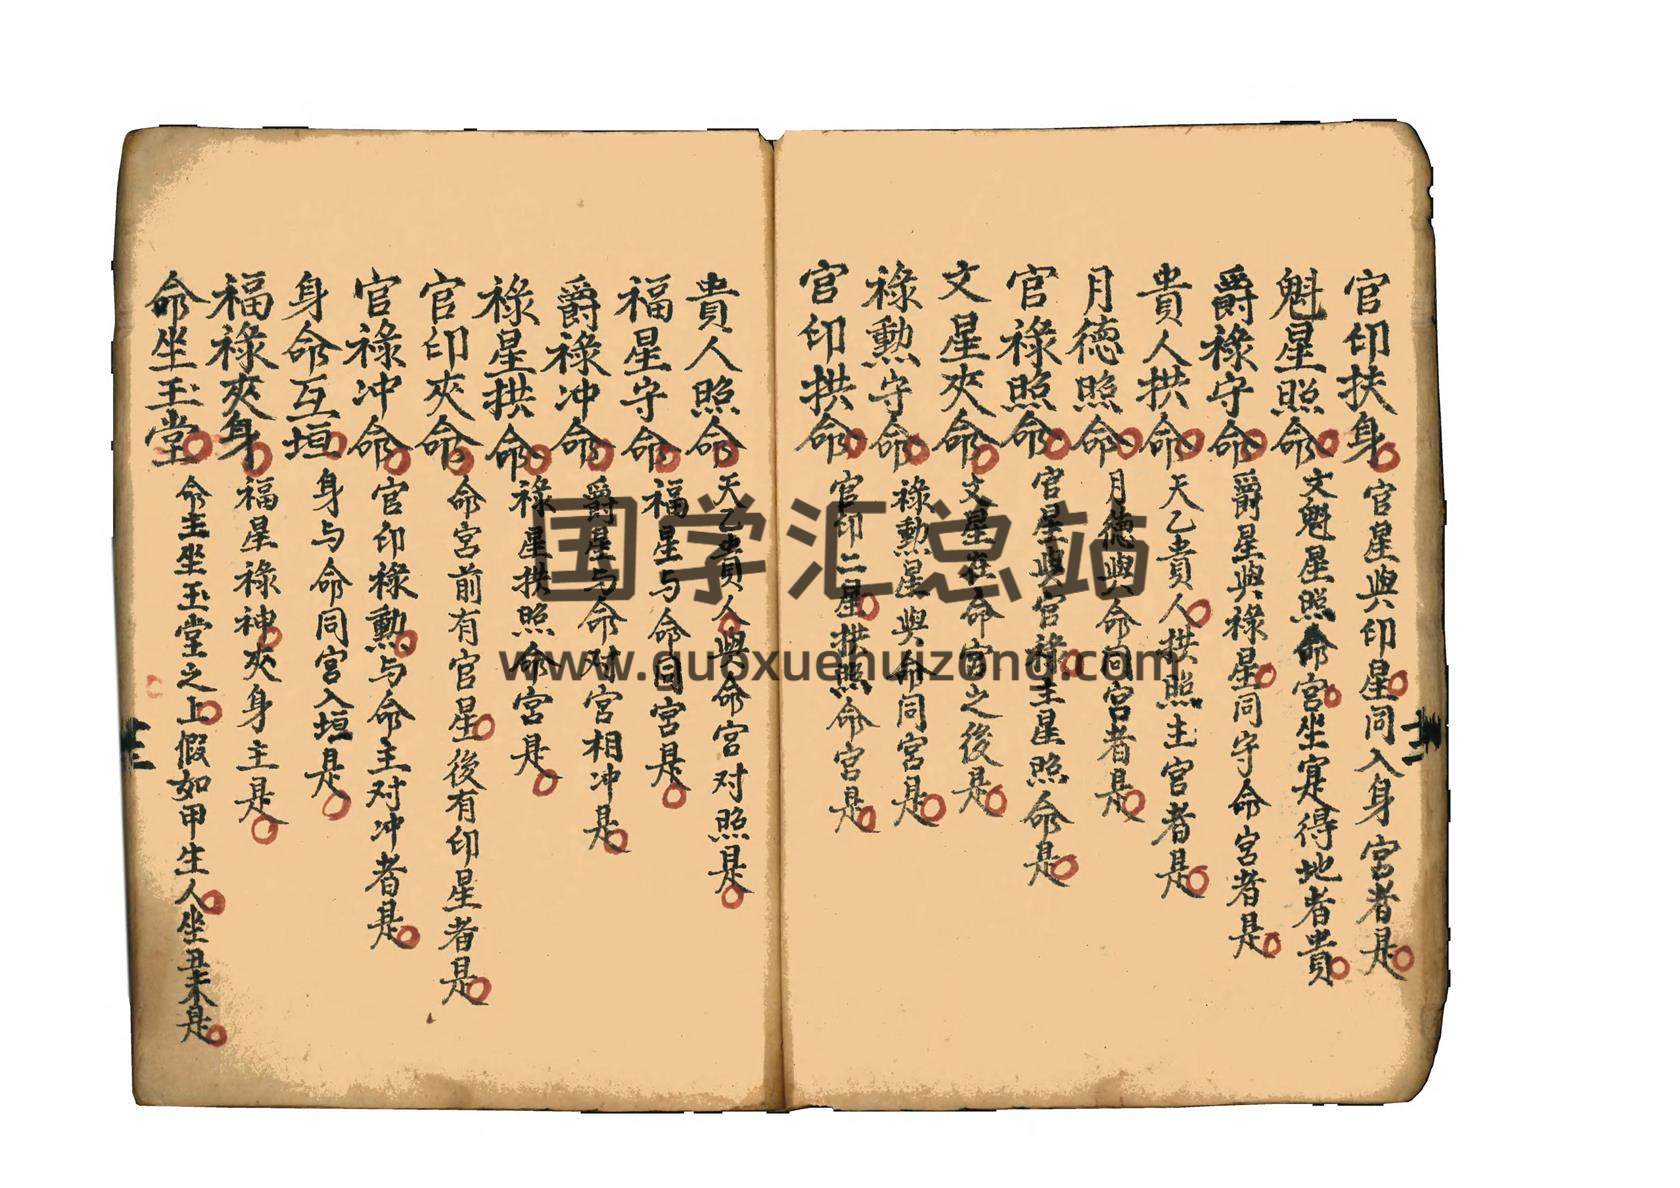 官印扶身 官星與印星同入身宮者是
魁星照命 文魁星照命宮坐寔得地者貴
爵祿守命 爵星與祿星同守命宮者是
貴人拱命 天乙貴人拱照主宮者是
月德照命 月德與命同宮者是
官祿照命 官星與官祿主星照命是
文星夾命 文星在命宮之後是
祿勲守命 祿勲星與命同宮是
官印拱命 官印二星拱照命宮是
貴人照命 天乙貴人與命宮对照是
福星守命 福星与命同宮是
爵祿冲命 爵星与命对宮相冲是
祿星拱命 祿星拱照命宮是
官印夾命 命宮前有官星後有印星者是
官祿冲命 官印祿勲与命主对冲者是
身命互垣 身与命同宮入垣是
福祿夾身 福星祿神夾身主是
命坐玉堂 命主坐玉堂之上假如甲生人坐丑未是
国学汇总站
www.guoxuehuizong.com